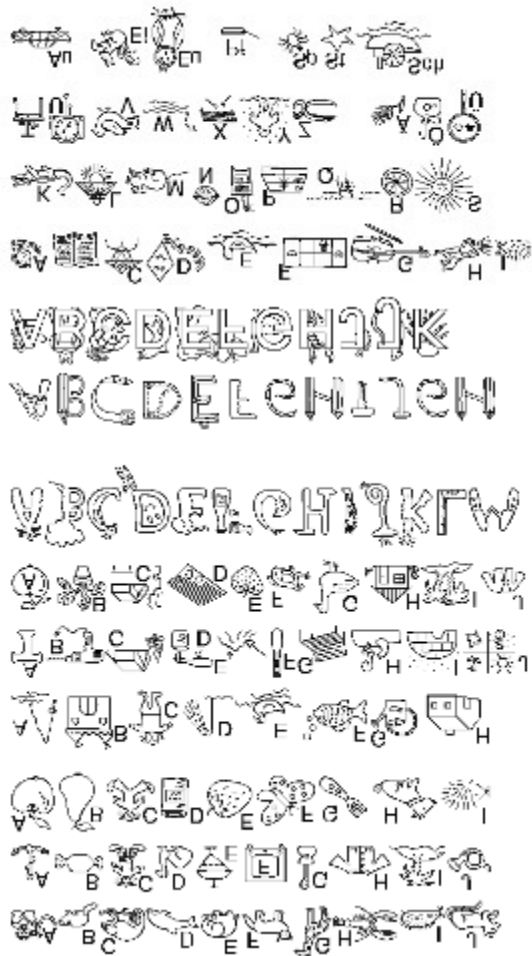 Au Ei Eu Sp St Sch
U V W X Y Z Ä Ö Ü
K L M N O P Q R S
A C D E F G H I
A B C D E F G H I J K
A B C D E F G H I J G H
A B C D E F G H I J K L M
A B C D E F G H I J
A B C D E F G H I J
A B C D E F G H
A B C D E F G H I
A B C D E F G H I J
A B C D E F G H I J